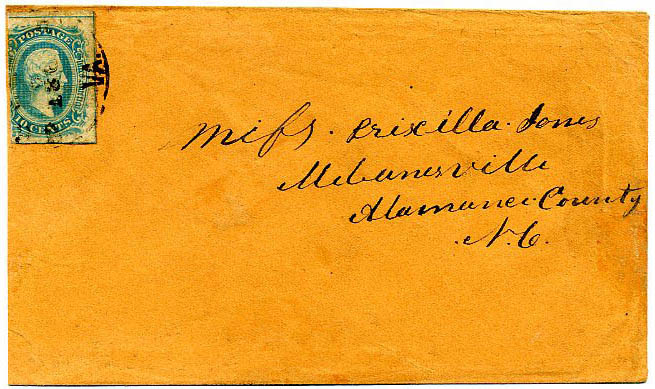 POSTAGE
10 CENTS
VA.
Miſs. Priscilla. Jones
Mebanesville
Alamance. County
N. C.